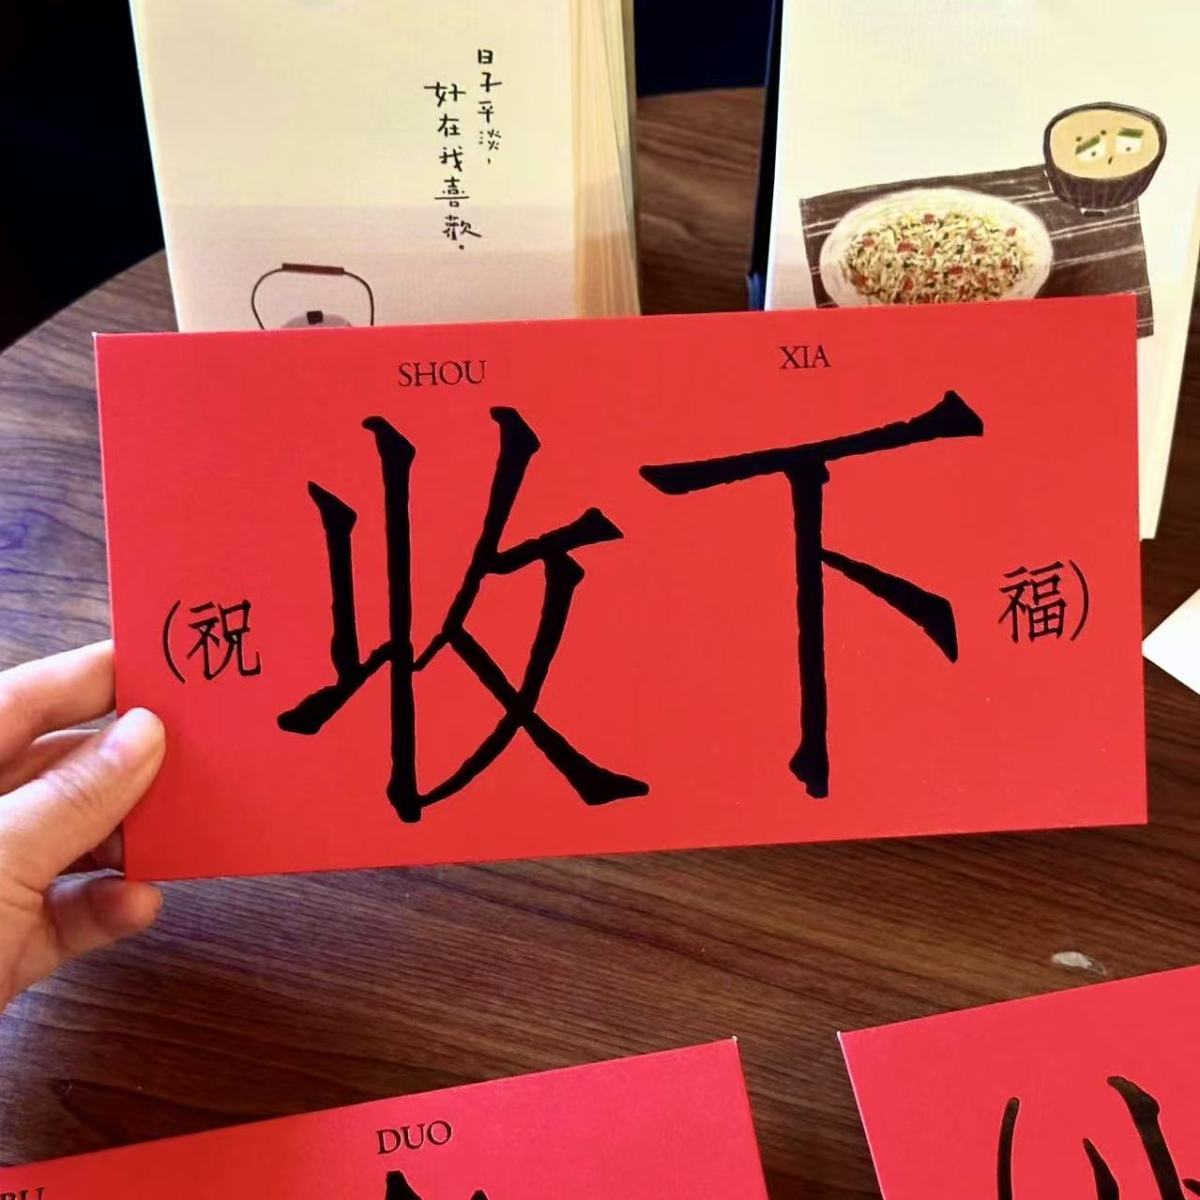 日子平淡，
好在我喜歡。
SHOU XIA
(祝 收下 福)
DUO